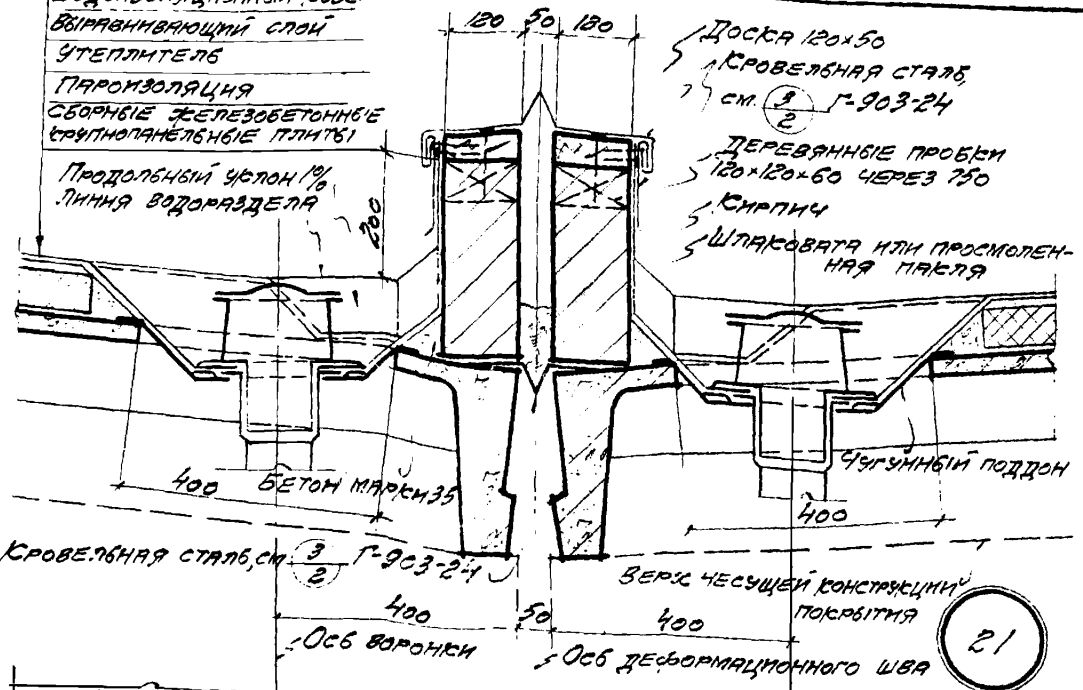 ВЫРАВНИВАЮЩИЙ СЛОЙ
УТЕПЛИТЕЛЬ
ПАРОИЗОЛЯЦИЯ
СБОРНЫЕ ЖЕЛЕЗОБЕТОННЫЕ
КРУПНОПАНЕЛЬНЫЕ ПЛИТЫ
ПРОДОЛЬНЫЙ УКЛОН 1%
ЛИНИЯ ВОДОРАЗДЕЛА
200
120 50 120
ДОСКА 120×50
КРОВЕЛЬНАЯ СТАЛЬ,
СМ. 3/2 Г-903-24
ДЕРЕВЯННЫЕ ПРОБКИ
120×120×60 ЧЕРЕЗ 750
КИРПИЧ
ШЛАКОВАТА ИЛИ ПРОСМОЛЕН-
НАЯ ПАКЛЯ
400 БЕТОН МАРКИ 35
ЧУГУННЫЙ ПОДДОН
400
КРОВЕЛЬНАЯ СТАЛЬ, СМ 3/2 Г-903-24
ВЕРХ НЕСУЩЕЙ КОНСТРУКЦИИ
ПОКРЫТИЯ
400 50 400
ОСЬ ВОРОНКИ
ОСЬ ДЕФОРМАЦИОННОГО ШВА
21